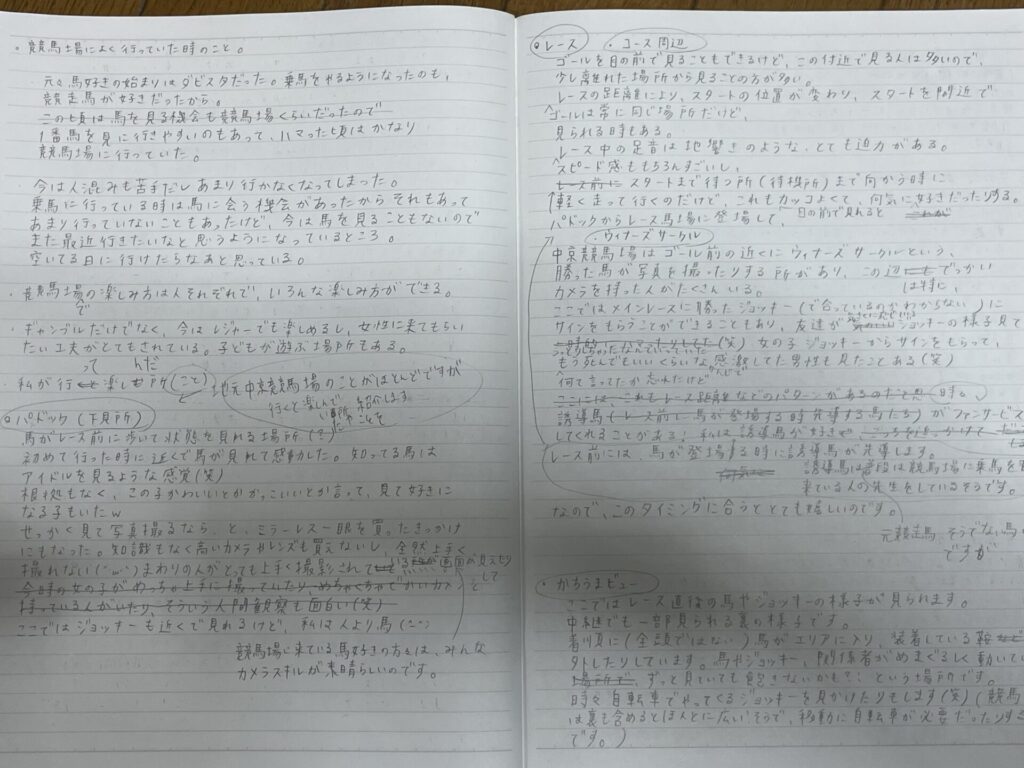 ・競馬場によく行っていた時のこと。
元々馬好きの始まりはダビスタだった。乗馬をやるようになったのも、
競走馬が好きだったから。
この頃は馬を見る機会も競馬場くらいだったので
1番馬を見に行きやすいのもあって、ハマった頃はかなり
競馬場に行っていた。
今は人混みも苦手だしあまり行かなくなってしまった。
乗馬に行っている時は馬に会う機会があったからそれもあって
あまり行っていないこともあったけど、今は馬を見ることもないので
また最近行きたいなと思うようになっているところ。
空いてる日に行けたらなあと思っている。
・競馬場の楽しみ方は人それぞれで、いろんな楽しみ方ができる。
で
・ギャンブルだけでなく、今はレジャーでも楽しめるし、女性に来てもらい
たい工夫がとてもされている。子どもが遊ぶ場所もある。
って んだ
・私が行く楽しむ所(こと)
地元中京競馬場のことがほとんどですが
行くと楽しんで
場所
ことを
紹介します
◎パドック(下見所)
馬がレース前に歩いて状態を見れる場所(?)
初めて行った時に近くで馬が見れて感動した。知ってる馬は
アイドルを見るような感覚(笑)
根拠もなく、この子かわいいとかかっこいいとか言って、見て好きに
なる子もいたw
せっかく見て写真撮るなら、と、ミラーレス一眼を買ったきっかけ
にもなった。知識もなく高いカメラやレンズも買えないし、全然上手く
撮れない(´;ω;`)まわりの人がとっても上手く撮影されて 画面が見えたり
して
今時の女の子がめっちゃ上手に撮っていたり、めちゃくちゃでかいカメラを
持っている人がいたり、そういう人間観察も面白い(笑)
ここではジョッキーも近くで見れるけど、私は人より馬
競馬場に来ている馬好きの方々は、みんな
カメラスキルが素晴らしいのです。
◎レース
・コース周辺
ゴールを目の前で見ることもできるけど、この付近で見る人は多いので、
少し離れた場所から見ることの方が多い。
レースの距離により、スタートの位置が変わり、スタートを間近で
ゴールは常に同じ場所だけど、
見られる時もある。
レース中の足音は地響きのような、とても迫力がある。
スピード感ももちろんすごいし、
レース前に スタートまで待つ所(待機所)まで向かう時に
軽く走って行くのだけど、これもカッコよくて、何気に好きだったりする。
パドックからレース馬場に登場して、目の前で見れると
・ウィナーズサークル
中京競馬場はゴール前の近くにウィナーズサークルという、
勝った馬が写真を撮ったりする所があり、この辺 でっかい
は特に、
カメラを持った人がたくさんいる。
ここではメインレースに勝ったジョッキー(で合っているのかわからない)に
サインをもらうことができることもあり、友達が ジョッキーの様子見て
(笑)女の子ジョッキーからサインをもらって、
もう死んでもいいくらいな感激してた男性も見たことある(笑)
かんじで
何て言ってたか忘れたけど
時々、
誘導馬(レース前に馬が登場する時先導する馬たち)がファンサービス
してくれることがある! 私は誘導馬が好きで、
レース前には、馬が登場する時に誘導馬が先導します。
誘導馬は普段は競馬場に乗馬を
来ている人の先生をしているそうです。
なので、このタイミングに合うととても嬉しいのです。
元競走馬、そうでない馬
ですが
・かちうまビュー
ここではレース直後の馬やジョッキーの様子が見られます。
中継でも一部見られる裏の様子です。
着順に(全頭ではない)馬がエリアに入り、装着している鞍
外したりしています。馬やジョッキー、関係者がめまぐるしく動いてい
場所で、ずっと見ていても飽きないかも?!という場所です。
時々自転車でやってくるジョッキーを見かけたりもします(笑)(競馬
は裏も含めるとほんとに広いそうで、移動に自転車が必要だったりする
です。)